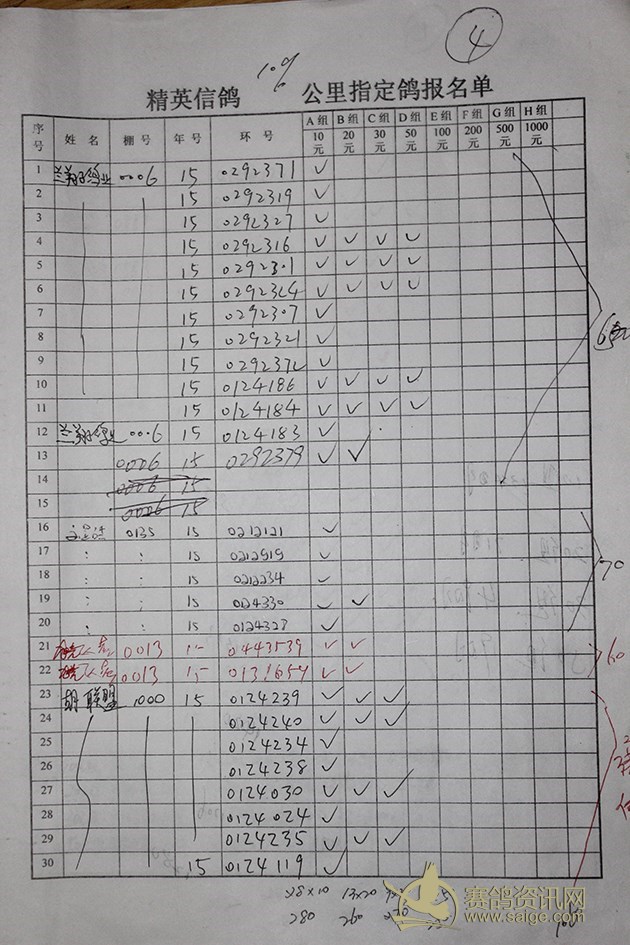 4
精英信鸽 公里指定鸽报名单
序号 姓 名 棚 号 年 号 环 号 A 组 10元 B 组 20元 C 组 30元 D 组 50元 E 组 100元 F 组 200元 G 组 500元 H 组 1000元
1 0006 15 0292371 ✓
2 15 0292319 ✓
3 15 0292327 ✓
4 15 0292316 ✓ ✓ ✓ ✓
5 15 0292301 ✓ ✓ ✓ ✓
6 15 ✓ ✓ ✓ ✓
7 15 0292307 ✓
8 15 0292321 ✓
9 15 ✓
10 15 0124186 ✓ ✓ ✓ ✓
11 15 0124184 ✓ ✓ ✓ ✓
12 0006 15 0124183 ✓
13 0006 15 0292379 ✓ ✓
14 0006 15
15 0006 15
16 0135 15 0212121 ✓
17 : : 15 0212919 ✓
18 : : 15 0212234 ✓
19 : : 15 0124330 ✓ ✓
20 : : 15 0124327 ✓
70
21 0013 15 0443539 ✓ ✓
22 0013 15 0131654 ✓ ✓
60
23 胡联盟 1000 15 0124239 ✓ ✓ ✓
24 0124240 ✓ ✓ ✓
25 0124234 ✓
26 0124238 ✓
27 0124030 ✓ ✓ ✓
28 0124024 ✓
29 0124235 ✓ ✓ ✓
30 15 0124119 ✓
28×10 13×20
280 260
赛鸽资讯网
www.saige.com